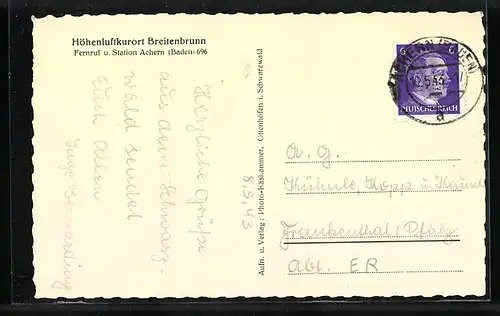 Höhenluftkurort Breitenbrunn
Fernruf u. Station Achern (Baden) 696
Herzliche Grüße
aus dem Schwarz-
wald sendet
Euch Allen
Inge
8.5.43
Aufn. u. Verlag: Photo-Käshammer, Ottenhöfen i. Schwarzwald
6 6
DEUTSCHES REICH
ACHERN (BADEN)
a
A. G.
Kühnle, Kopp u. Kausch
Frankenthal / Pfalz
Abt. ER